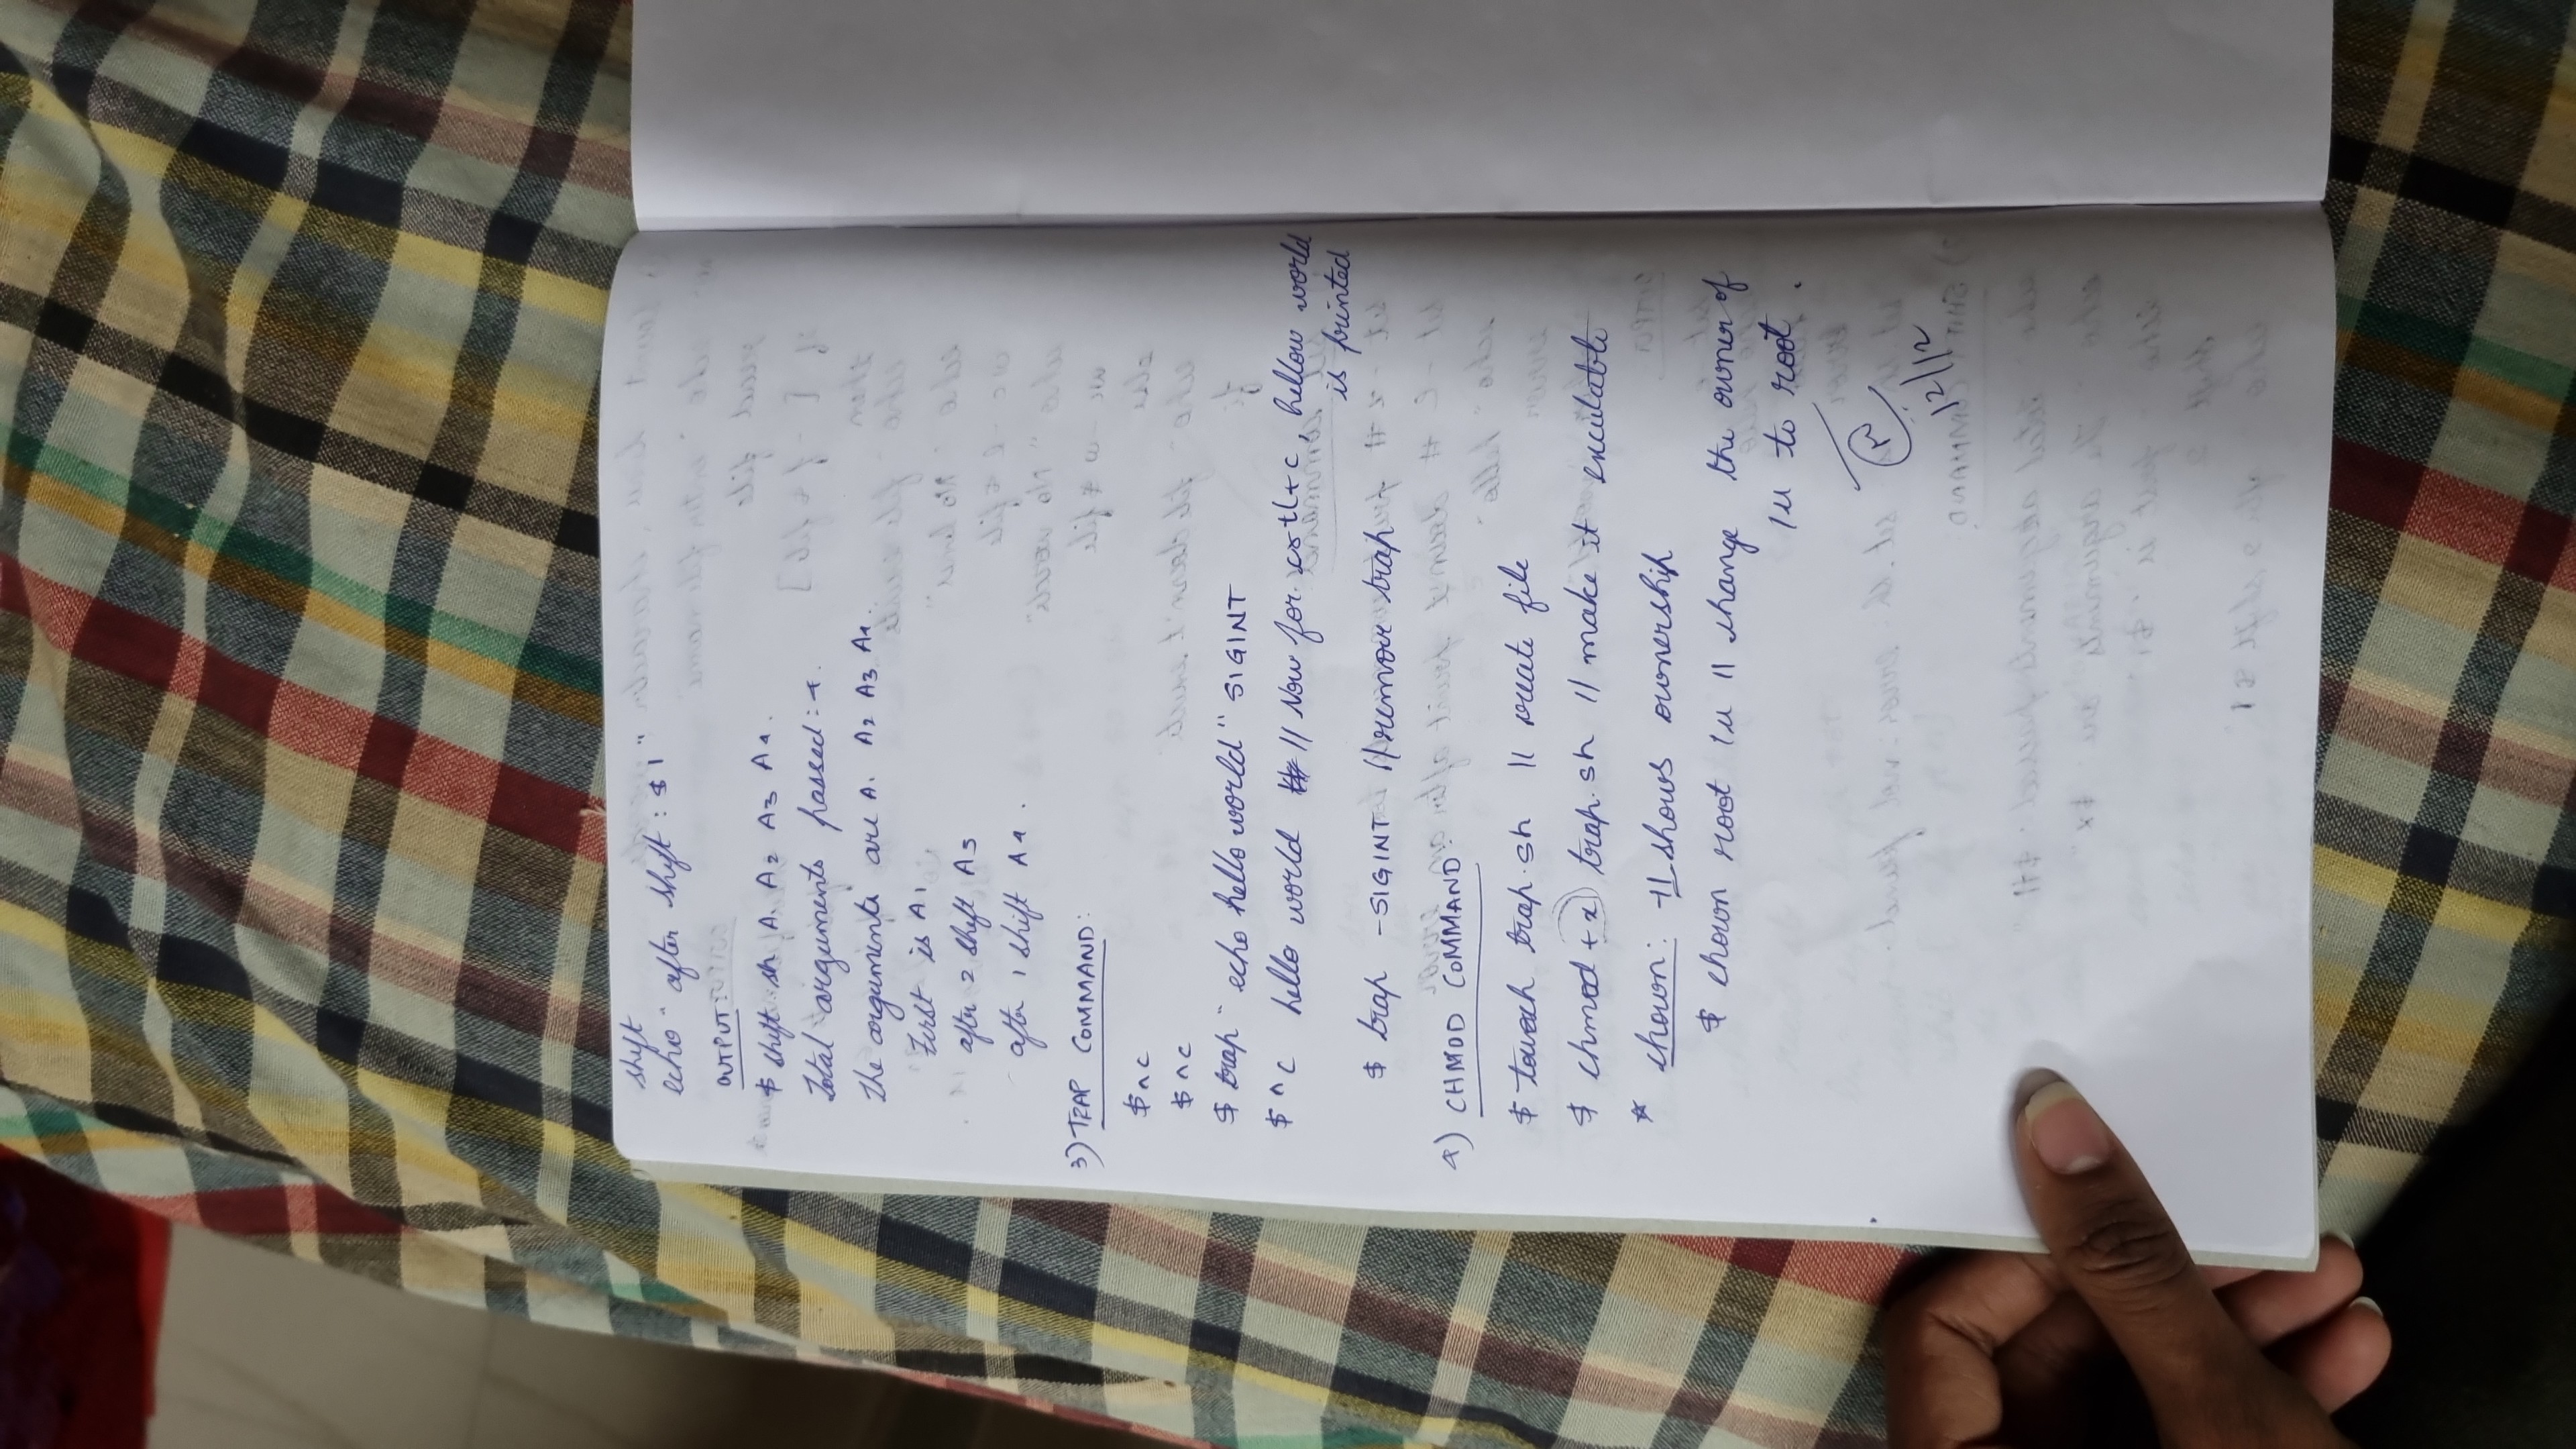 shift
echo " after shift : $1 "
OUTPUT:
$ shift.sh A1 A2 A3 A4.
Total arguments passed : 4.
The arguments are A1 A2 A3 A4.
First is A1
after 2 shift A3
after 1 shift A4.
3) TRAP COMMAND:
$ ^c
$ ^c
$ trap " echo hello world " SIGINT
$ ^c hello world // Now for ctrl+c, hellow world
is printed
$ trap - SIGINT // remove trap
4) CHMOD COMMAND:
$ touch trap.sh // create file
$ chmod +x trap.sh // make it exculatble
* chown: // shows ownership
$ chown root /u // change the owner of
/u to root.
12/12